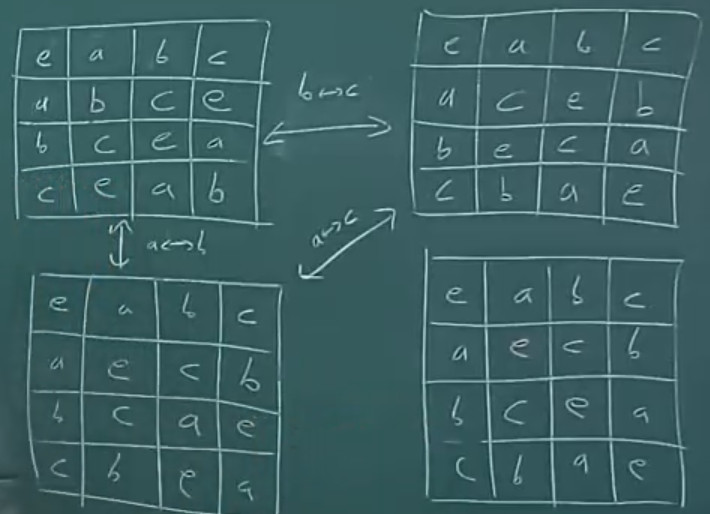 e a b c
a b c e
b c e a
c e a b
b↔c
e a b c
a c e b
b e c a
c b a e
a↔b
a↔c
e a b c
a e c b
b c a e
c b e a
e a b c
a e c b
b c e a
c b a e